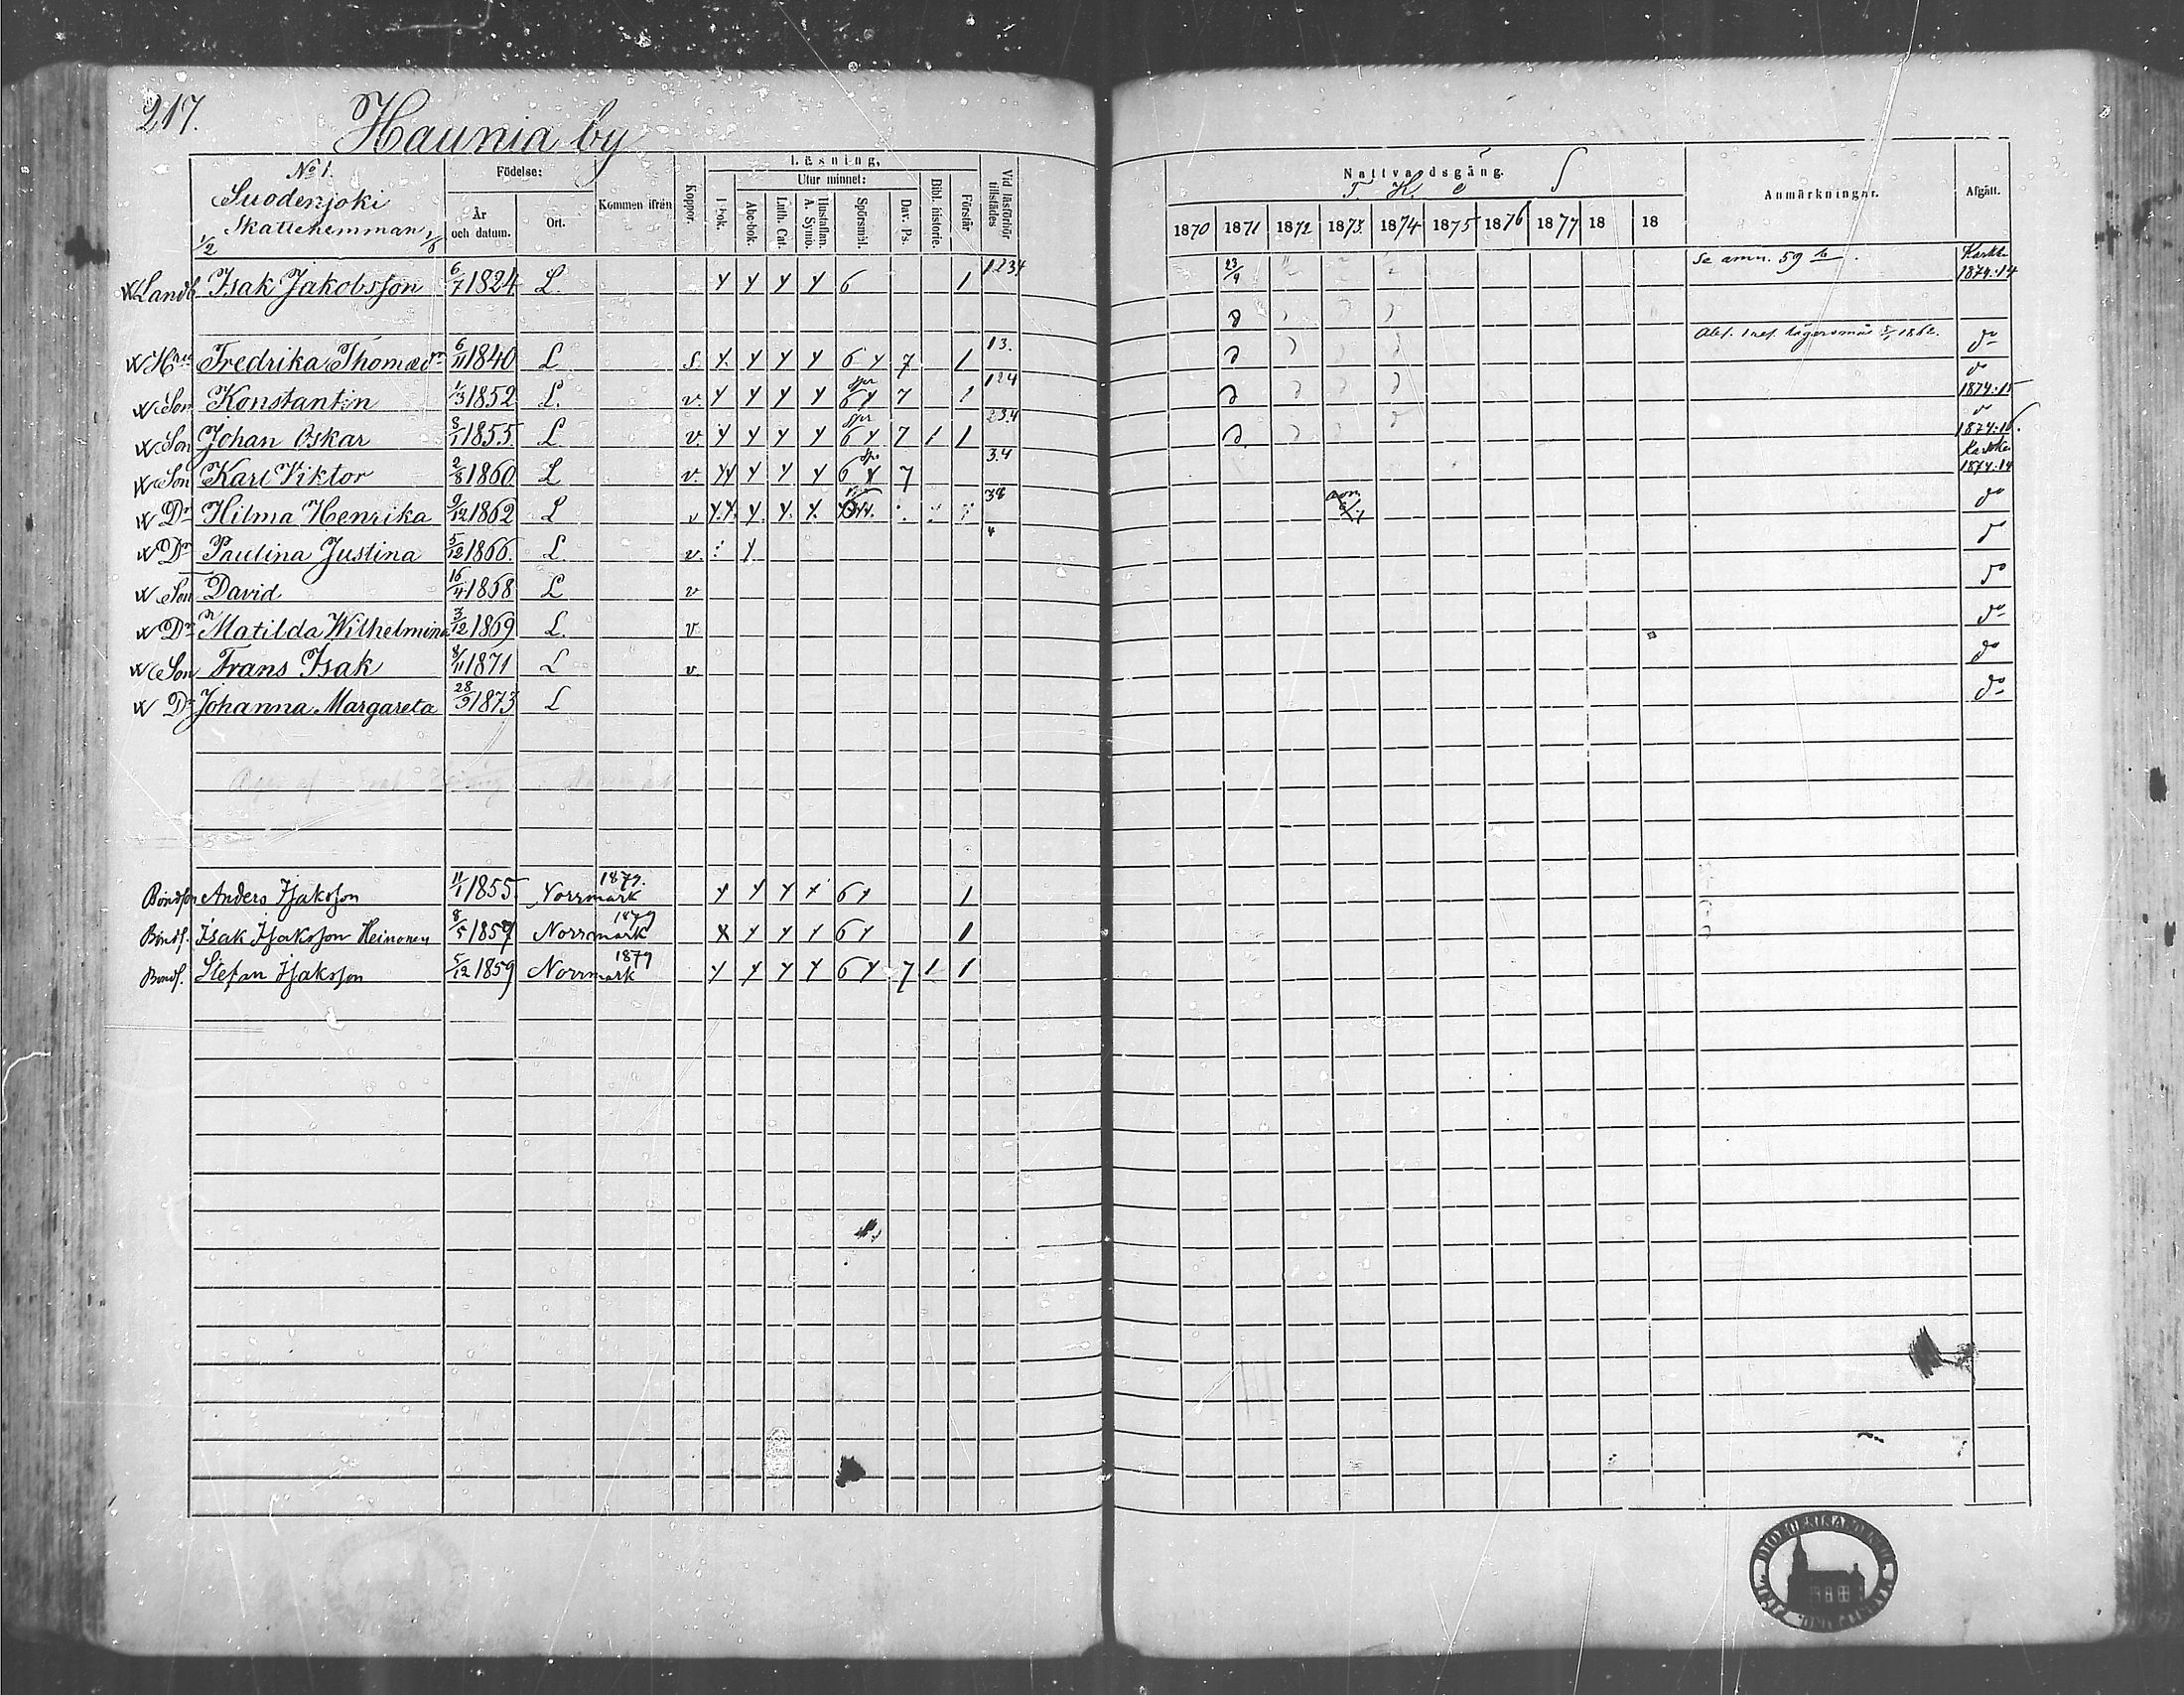 217.
Haunia by
No 1.
Suodenjoki
Skattehemman 1/6
1/2
Födelse:
År och datum.
Ort.
Kommen ifrån
Koppor.
Läsning,
Utur minnet:
I bok.
Abc-bok.
Luth. Cat.
Hustaflan. A. Symb.
Spörsmål.
Dav. Ps.
Bibl. historie.
Förstår
Vid läsförhör tillstädes
Nattvardsgång.
1870 1871 1872 1873 1874 1875 1876 1877 18 18
Anmärkningar.
Afgått.
Landb. Isak Jakobsson 6/7 1824 L. 6 1 1234 23/4 Se anm. 59 1874.14
Hru Fredrika Thomædr 6/11 1840 L s. 6 7 1 13. 1862. do
Son Konstantin 1/3 1852 L. v. 6 7 1 124 do 1874.15
Son Johan Oskar 8/1 1855 L v. 6 7 1 1 234 do 1874.16.
Son Karl Viktor 2/8 1860 L v. 6 7 3.4 1874.14
Dr Hilma Henrika 9/12 1862 L v 38 do
Dr Paulina Justina 5/12 1866. L. v. 4 do
Son David 16/4 1858 L v do
Dr Matilda Wilhelmina 3/12 1869 L. v. do
Son Frans Isak 8/11 1871 L v. do
Dr Johanna Margareta 28/9 1873 L do
Bondson Anders Isaksson 11/1 1855 Norrmark 1879. 6 1
Bonds. Isak Isaksson Heinonen 8/5 1857 Norrmark 1879 6 1
Bonds. Stefan Isaksson 5/12 1859 Norrmark 1879 6 7 1 1